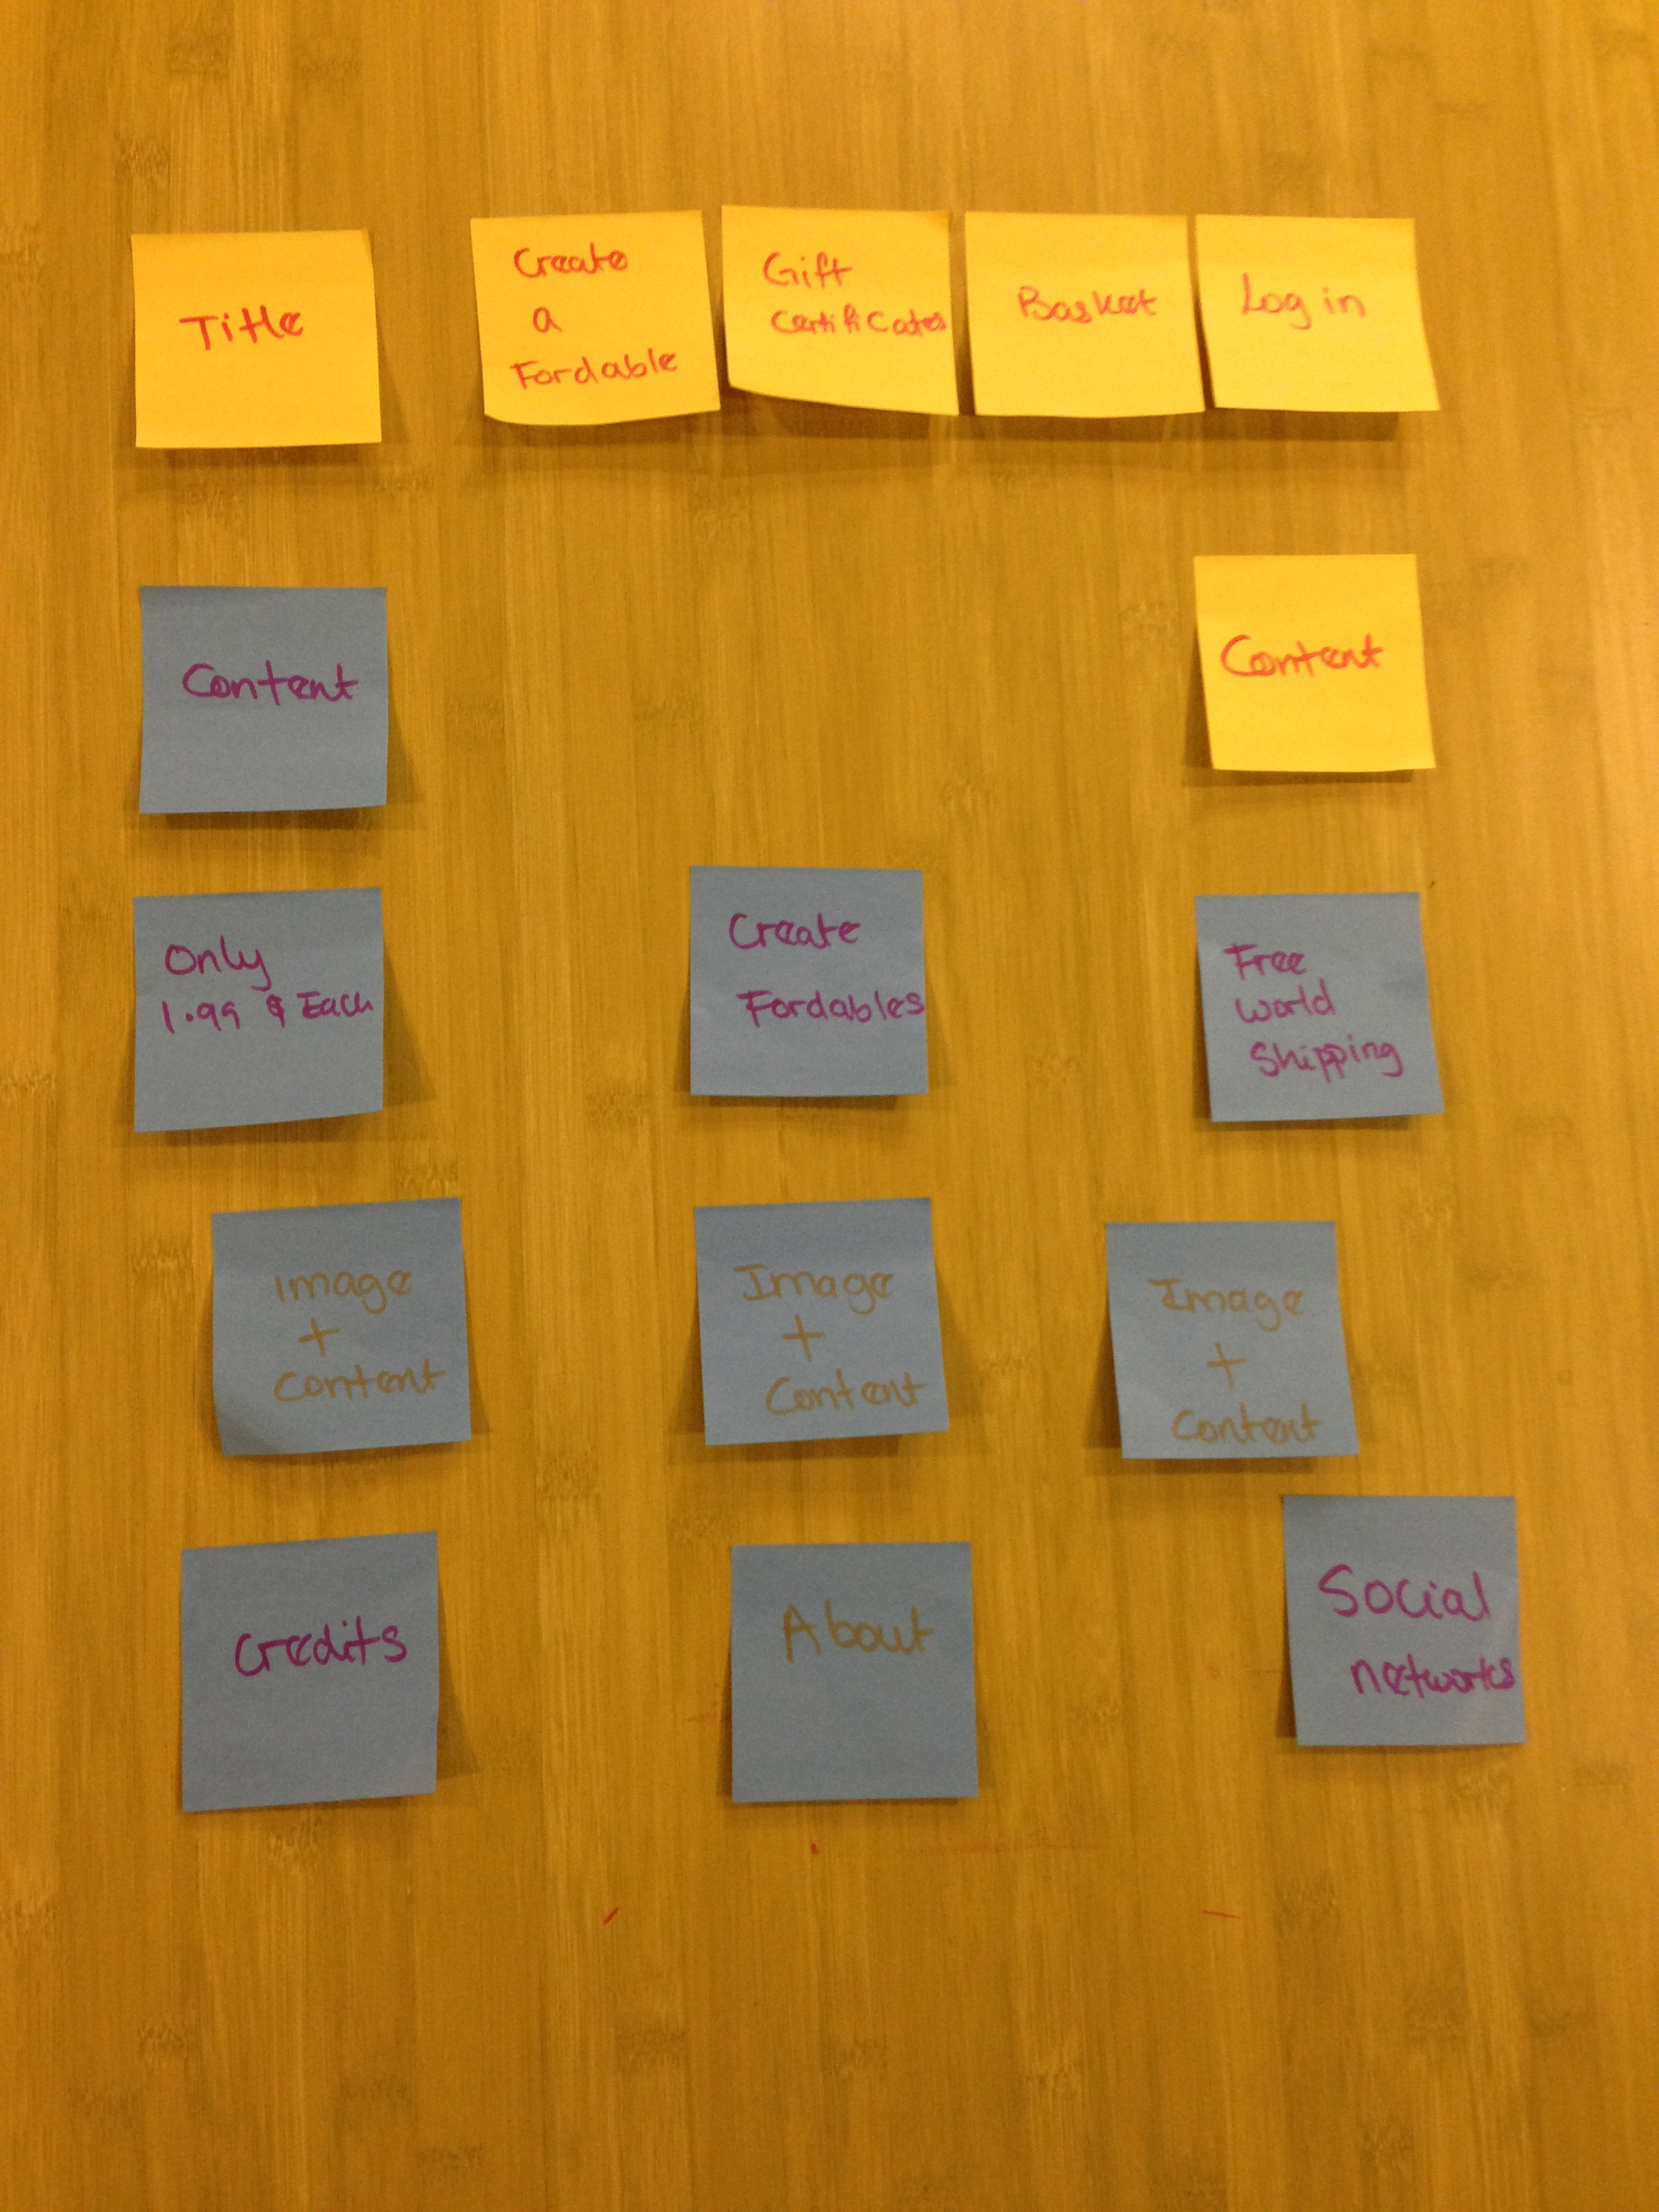 Title
Create
a
Fordable
Gift
Certificates
Basket
Log in
Content
Content
Only
1.99 $ Each
Create
Fordables
Free
World
Shipping
Image
+
Content
Image
+
Content
Image
+
Content
Credits
About
Social
networks